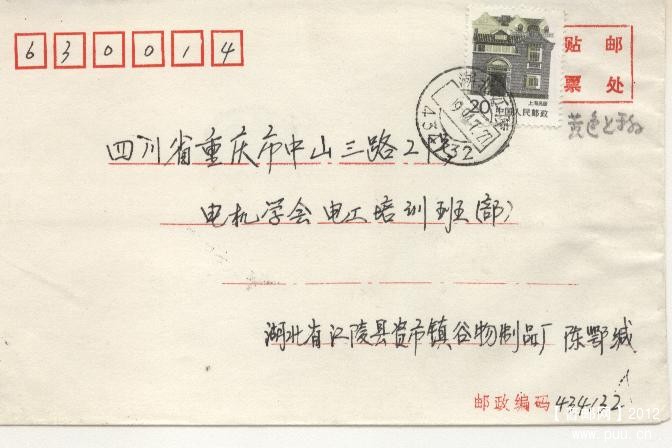 630014
贴邮
票处
上海民居
20 中国人民邮政
湖北江陵
434132
黄色
四川省重庆市中山三路2号
电机学会电工培训班(部)
湖北省江陵县资市镇谷物制品厂 陈鄂缄
邮政编码 434132
2012
www.puu.cn